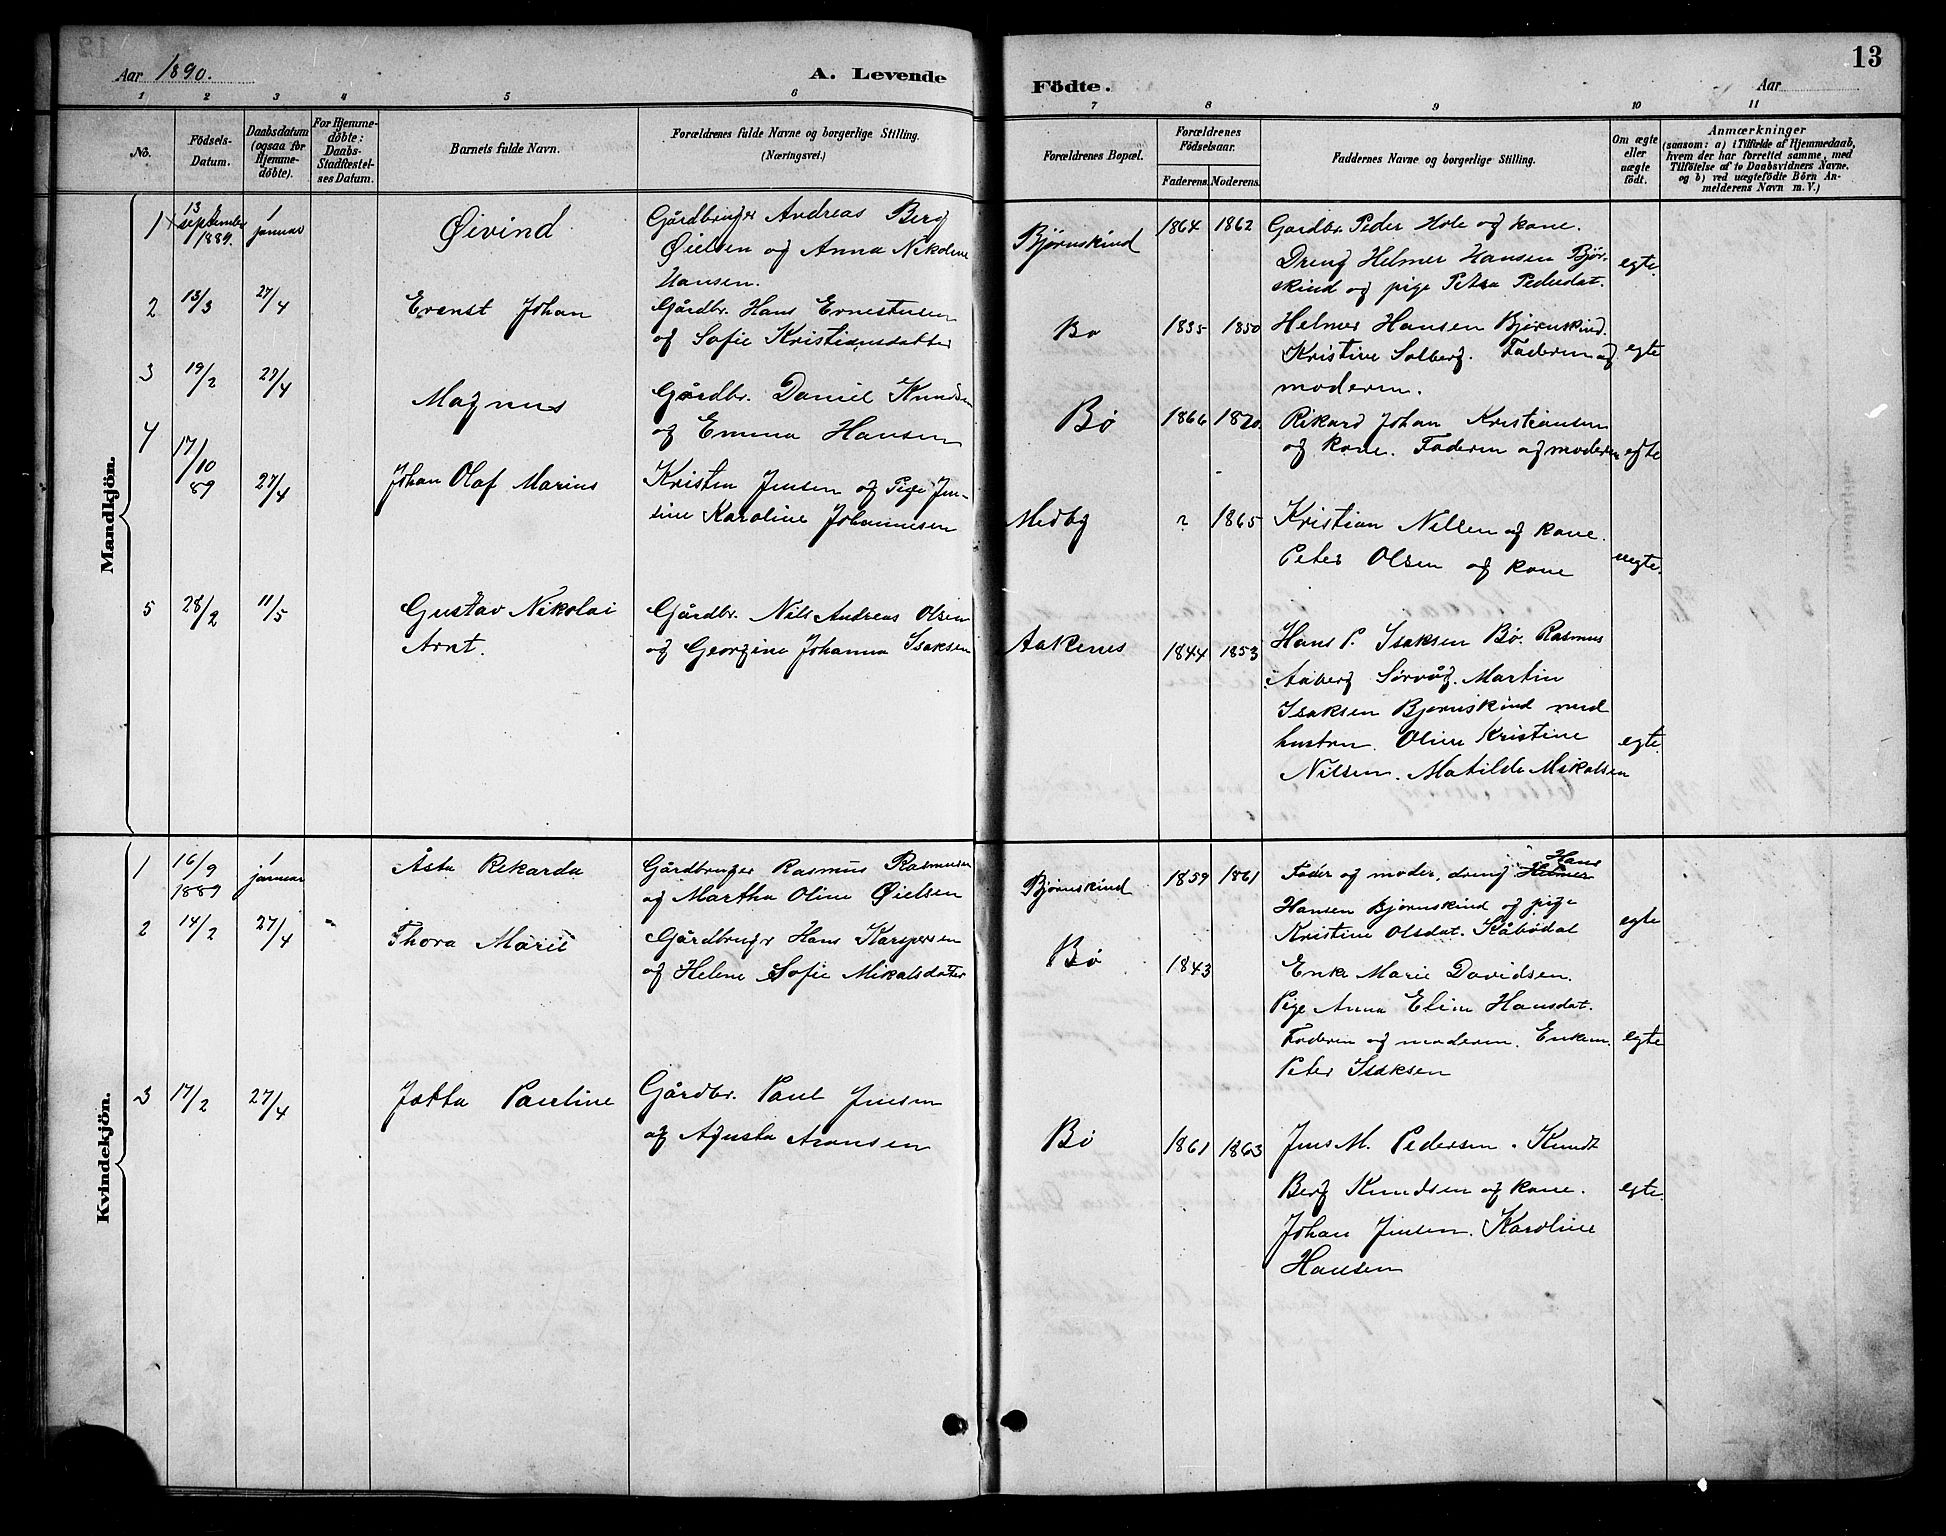 Aar 1890.
A. Levende
Födte.
Aar
13
1 2 3 4 5 6 7 8 9 10 11
No.
Födsels-
Datum.
Daabsdatum
(ogsaa for
Hjemme-
döbte).
For Hjemme-
döbte:
Daabs-
Stadfestel-
ses Datum.
Barnets fulde Navn.
Forældrenes fulde Navne og borgerlige Stilling.
(Næringsvei.)
Forældrenes Bopæl.
Forældrenes
Födselsaar.
Faderens. Moderens.
Faddernes Navne og borgerlige Stilling.
Om ægte
eller
uægte
födt.
Anmærkninger
(saasom: a) i Tilfælde af Hjemmedaab,
hvem der har forrettet samme, med
Tilföielse af to Daabsvidners Navne.
og b) ved uægtefödte Börn An-
melderens Navn m. V.)
Mandkjön.
1
13
september
1889.
1
januar
Øivind
Gårdbruger Andreas Berg
Øielsen og Anna Nikoline
Hansen.
Bjørnskind
1864 1862
Gardbr. Peder Hole og kone.
Dreng Helmer Hansen Bjør-
skind og pige Petra Pedersdat.
egte.
2
13/3
27/4
Ernst Johan
Gårdbr. Hans Ernestusen
og Sofie Kristiansdatter
Bø
1835 1850
Helmer Hansen Bjørnskind.
Kristine Solberg. Faderen og
moderen.
egte
3
19/2
27/4
Magnus
Gårdbr. Daniel Knudsen
og Emma Hansen
Bø
1866 1870.
Rikard Johan Kristiansen
og kone. Faderen og moderen
egte
4
17/10
89
27/4
Johan Olaf Marius
Kristen Jensen og Pige Jen-
sine Karoline Johannesen
Medby
? 1865
Kristian Nilsen og kone.
Peter Olsen og kone
uegte.
5
28/2
11/5
Gustav Nikolai
Arnt.
Gårdbr. Nils Andreas Olsen
og Georgine Johanna Isaksen
Aakenes
1844 1853
Hans P. Isaksen Bø. Rasmus
Aaberg Sørvåg. Martin
Isaksen Bjørnskind med
hustru. Oline Kristine
Nilsen. Matilde Mikalsen
egte.
Kvindekjön.
1
16/9
1889
1
januar
Åsta Rikarda
Gårdbruger Rasmus Rasmusen
og Martha Oline Øielsen
Bjørnskind
1859 1861
Fader og moder, dreng Helmer Hans
Hansen Bjørnskind og pige
Kristine Olsdat. Kåbødal
egte
2
14/2
27/4
Thora Marie
Gårdbruger Hans Kaspersen
og Helene Sofie Mikalsdatter
Bø
1843
Enke Marie Davidsen.
Pige Anna Eline Hansdat.
Faderen og moderen. Enkem.
Peter Isaksen
egte
3
17/2
27/4
Jotta Pauline
Gårdbr. Paul Jensen
og Agusta Aronsen
Bø
1861 1863
Jens M. Pedersen. Knudt
Berg Knudsen og kone.
Johan Jensen. Karoline
Hansen
egte.